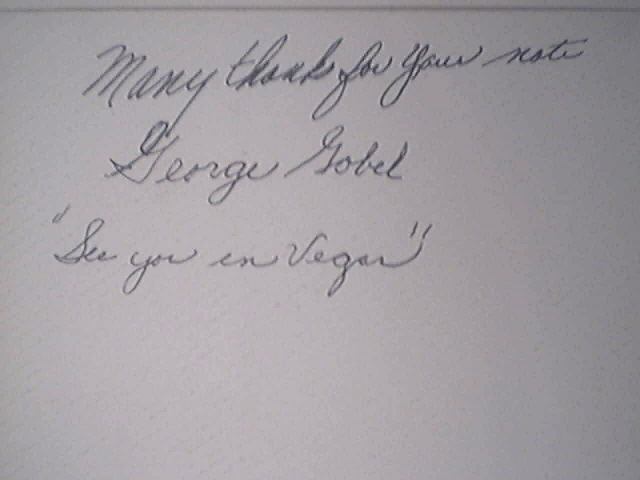 Many thanks for your note
George Gobel
"See you in Vegas"